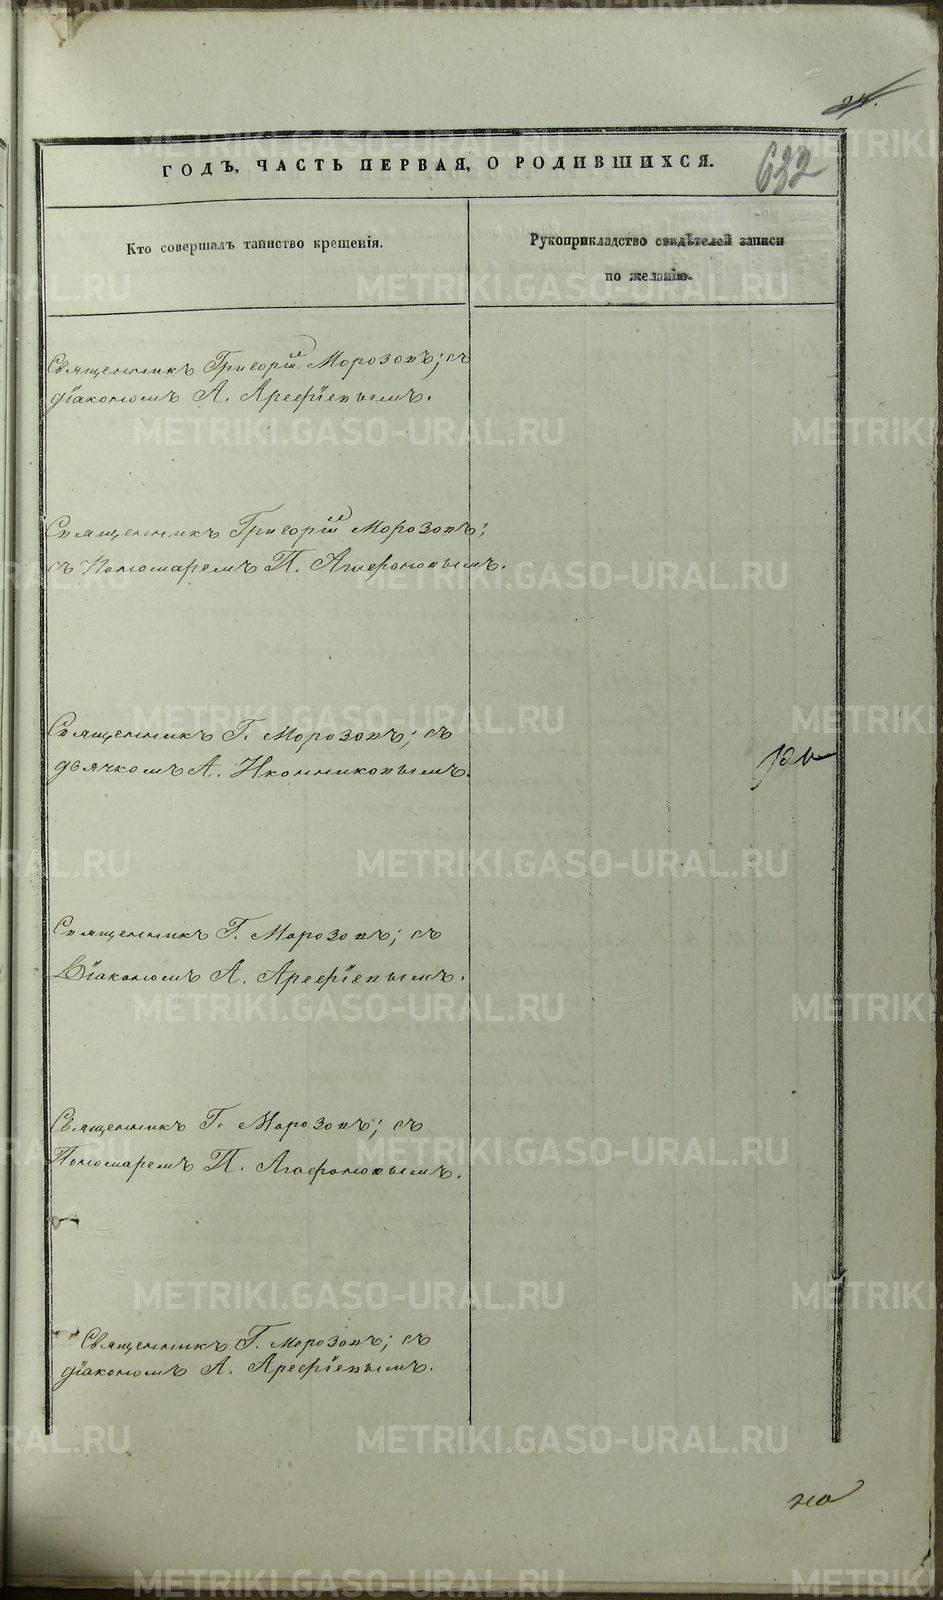 24.
ГОДЪ, ЧАСТЬ ПЕРВАЯ, О РОДИВШИХСЯ.
632
Кто совершалъ таинство крещенія.
Рукоприкладство свидѣтелей записи
по желанію.
Священникъ Григорій Морозовъ; съ
діакономъ А. Арефіевымъ.
Священникъ Григорій Морозовъ;
съ Пономаремъ П. Агафоновымъ.
Священникъ Г. Морозовъ; съ
дьячкомъ А. Иконниковымъ.
Священникъ Г. Морозовъ; съ
Діакономъ А. Арефіевымъ.
Священникъ Г. Морозовъ; съ
Пономаремъ П. Агафоновымъ.
Священникъ Г. Морозовъ; съ
діакономъ А. Арефіевымъ.
METRIKI.GASO-URAL.RU